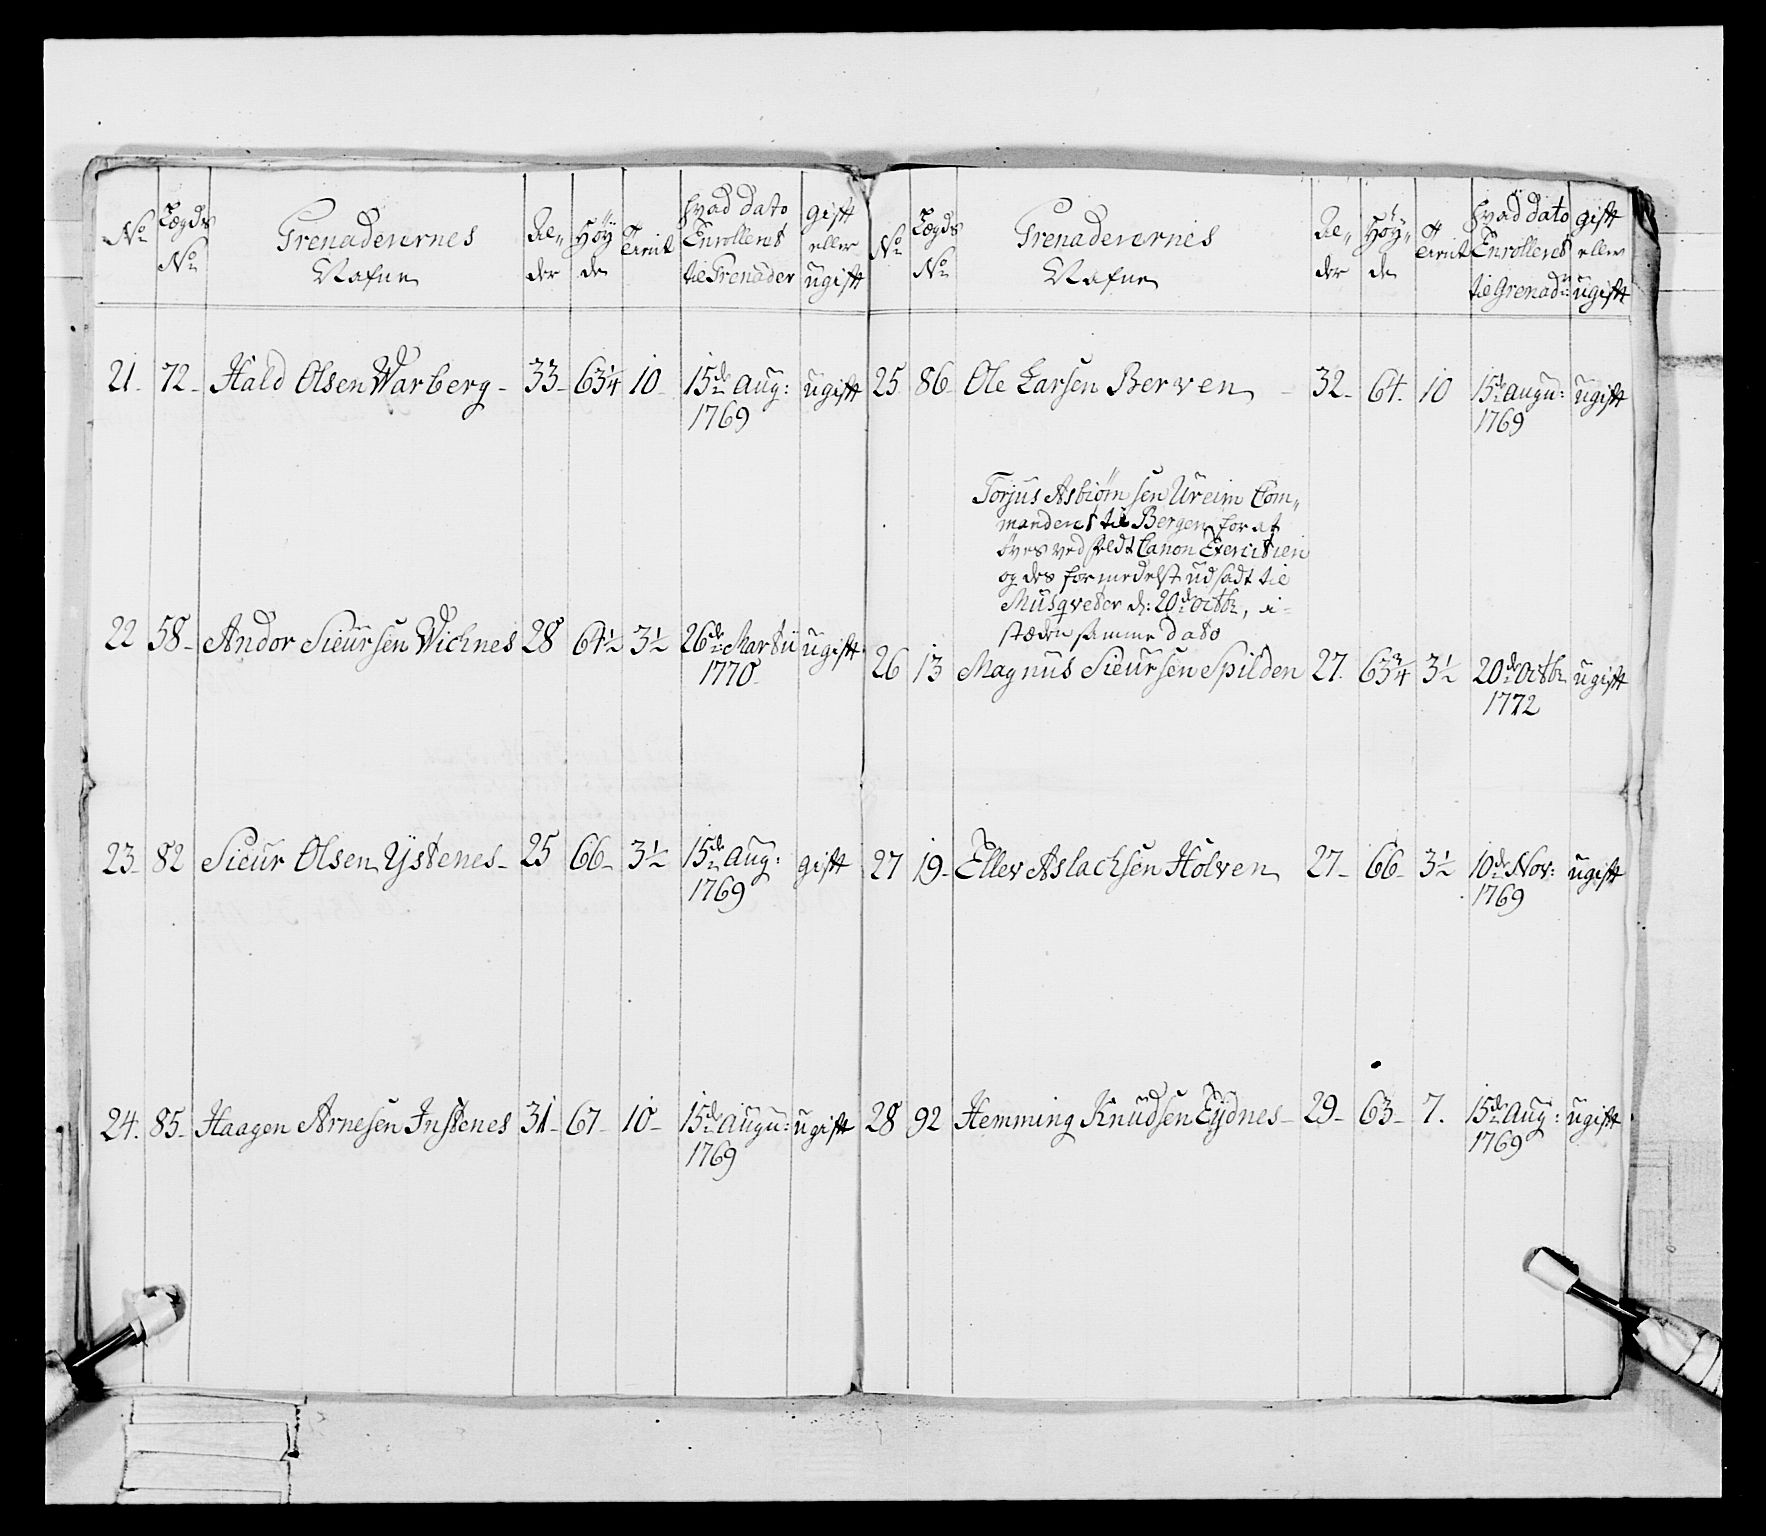 No Lægds No Grenaderernes Nafne Al„der Höy de Tienst hvad dato Enrolleret til Grenader gift eller ugift
21 72 Hald Olsen Warberg 33 63¼ 10 15de Aug: 1769 ugift
22 58 Andor Sieursen Wichnes 28 64½ 3½ 26de Martii 1770 ugift
23 82 Sieur Olsen Ystenes 25 66 3½ 15de Aug: 1769 gift
24. 85 Haagen Arnesen Instenes 31 67 10 15de Augu: 1769 ugift
No Lægds No Grenaderernes Nafne Al„der Höy„de Tienst hvad dato Enrolleret til Grenadr: gift eller ugift
25 86 Ole Larsen Berven 32 64. 10 15de Augu: 1769 ugift
Torjus Asbiørnsen Ureim Com„
manderet til Bergen for at
öves ved feldt Canon Exercitien
og des formedelst udsadt til
Musqveter d: 20de octbr, i
stæden samme dato
26 13 Magnus Sieursen Spilden 27. 63¾ 3½ 20de octbr 1772 ugift
27 19 Ellev Aslachsen Holven 27 66 3½ 10de Nov: 1769 ugift
28 92 Hemming Knudsen Eydnes 29 63 7. 15de Aug: 1769 ugift